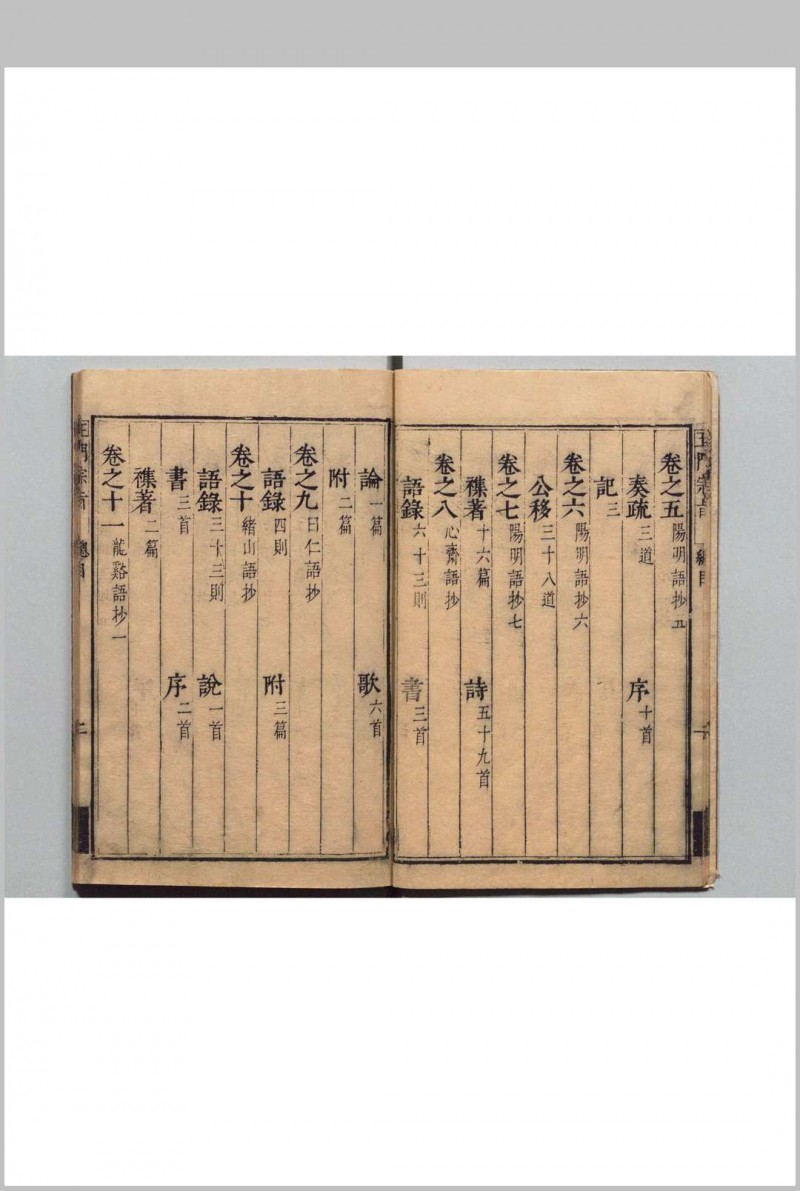 王門宗旨 總目 一
卷之五 陽明語抄五
奏疏 三道 序 十首
記 三
卷之六 陽明語抄六
公移 三十八道
卷之七 陽明語抄七
襍著 十六篇 詩 五十九首
卷之八 心齋語抄
語錄 六十三則 書 三首
論 一篇 歌 六首
附 二篇
卷之九 曰仁語抄
語錄 四則 附 三篇
卷之十 緒山語抄
語錄 三十三則 說 一首
書 三首 序 二首
襍著 二篇
卷之十一 龍谿語抄一
王門宗旨 總目